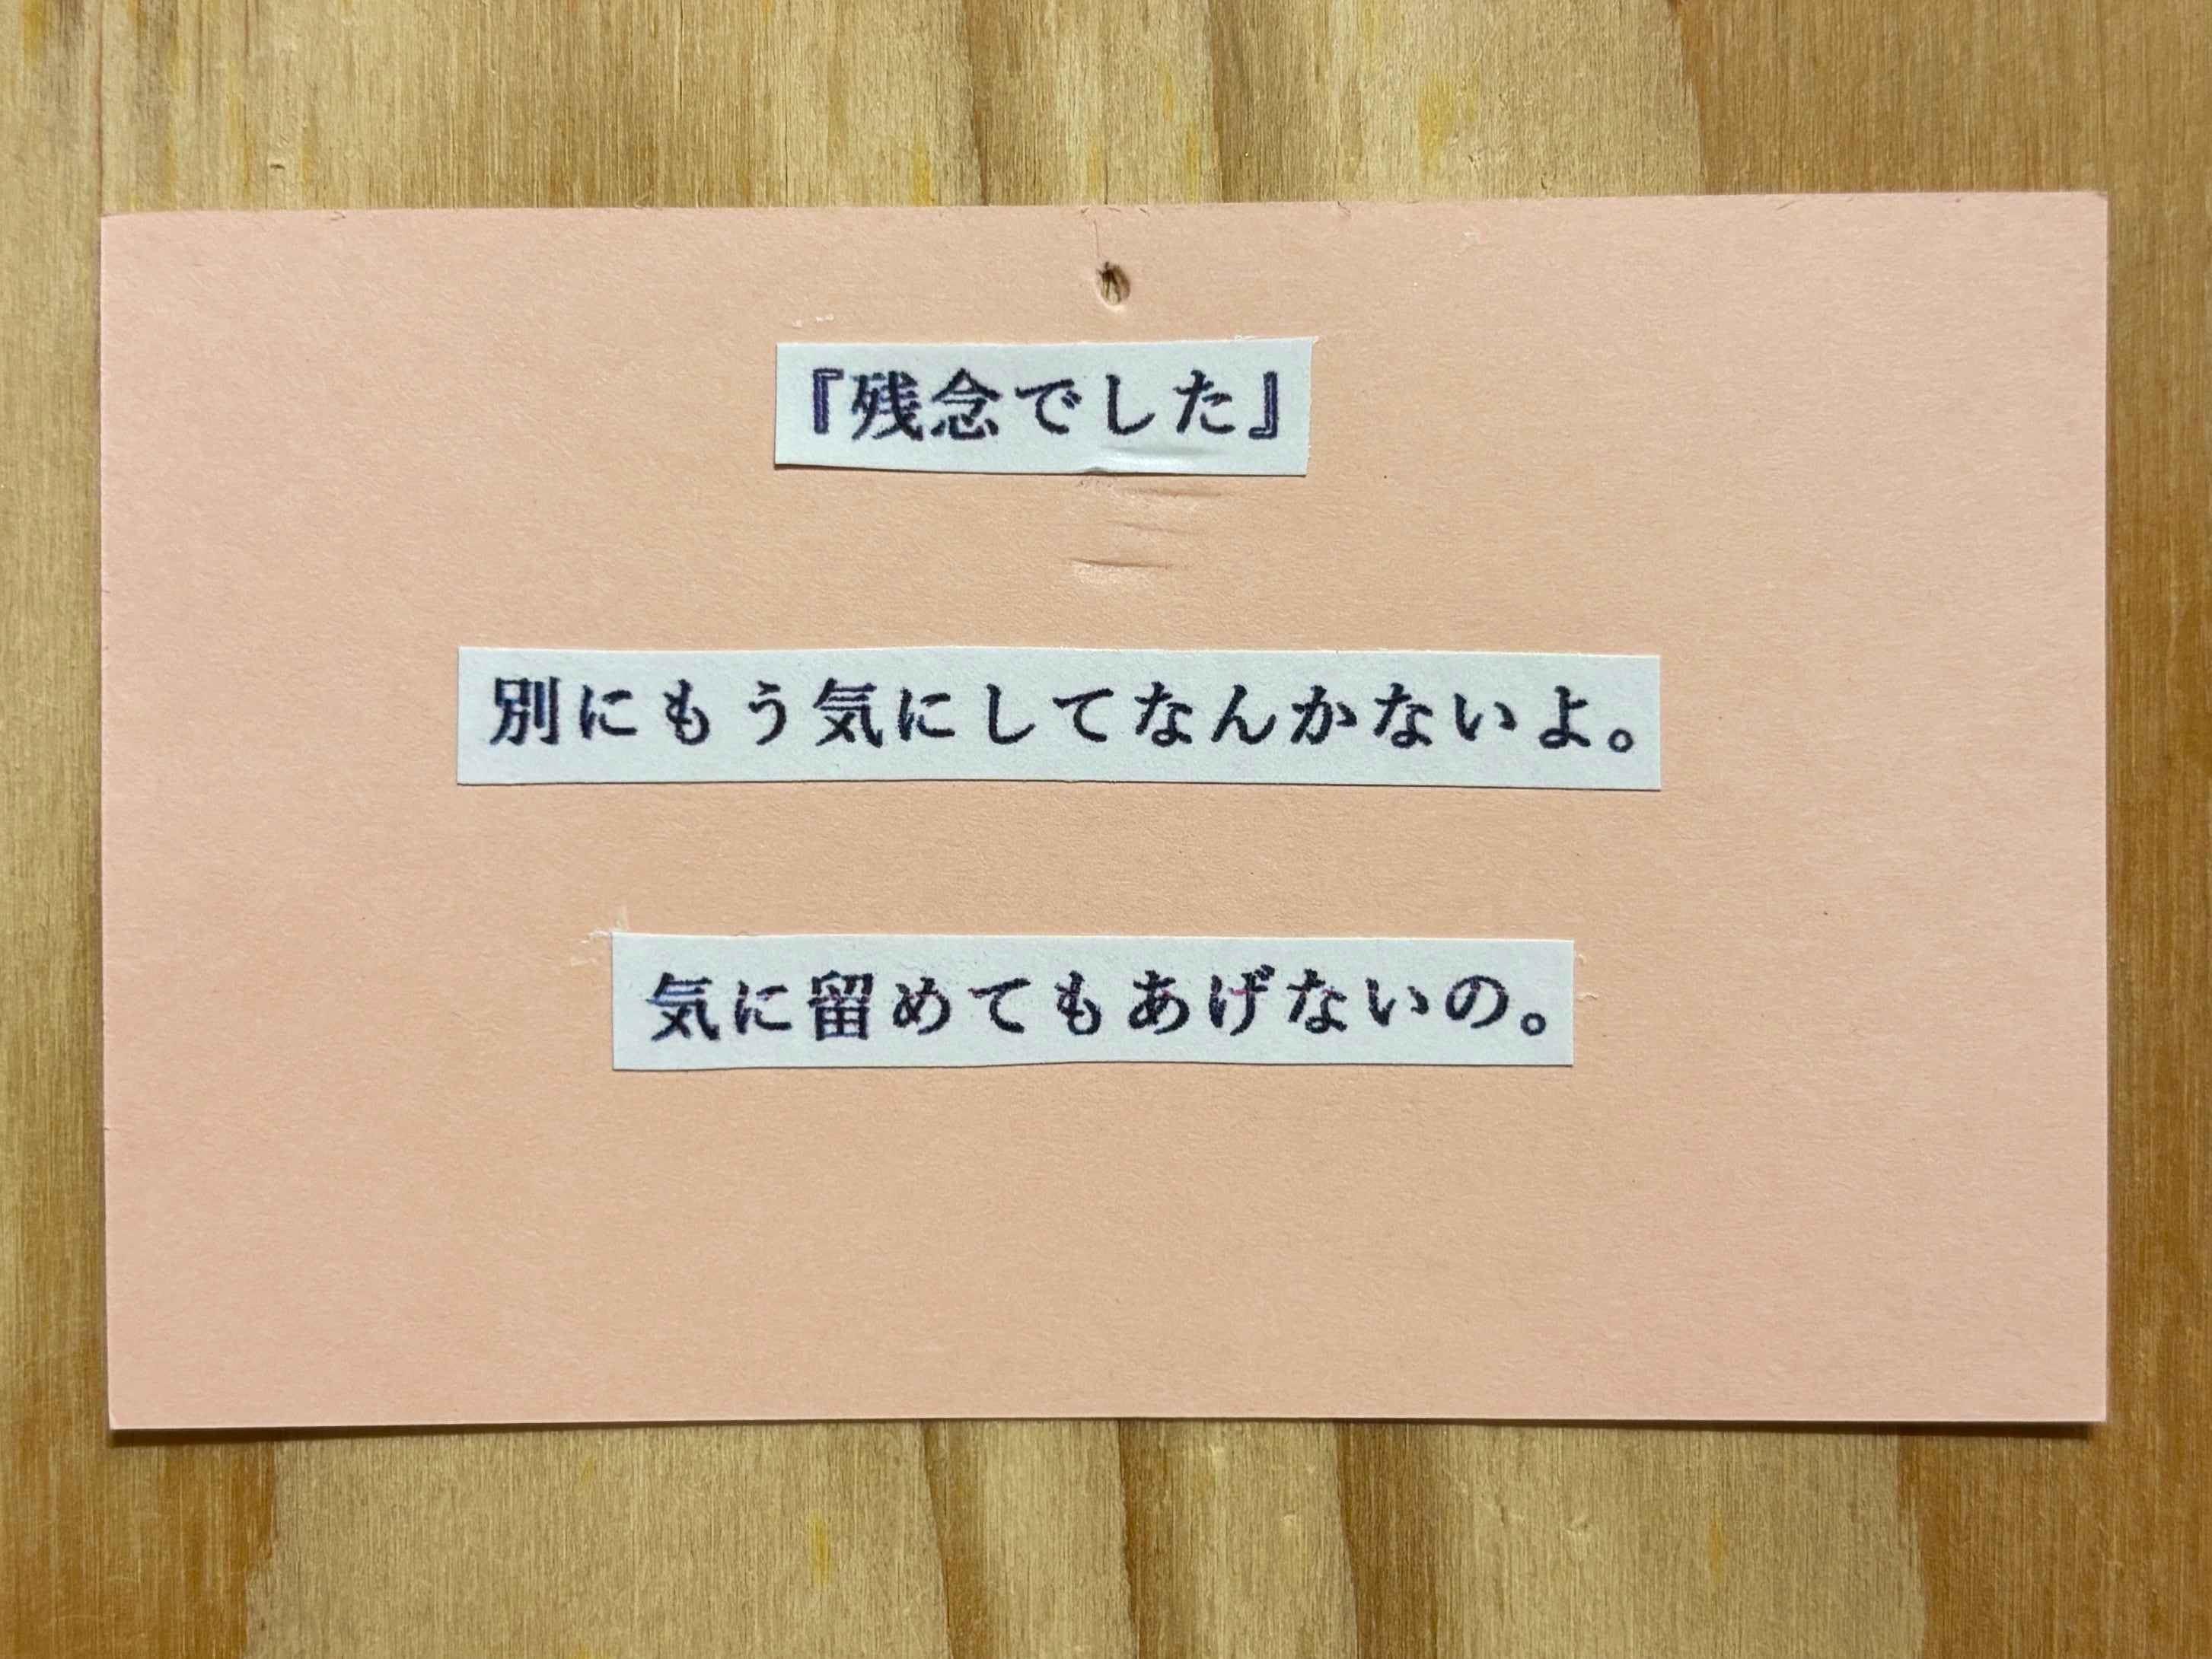 『残念でした』
別にもう気にしてなんかないよ。
気に留めてもあげないの。